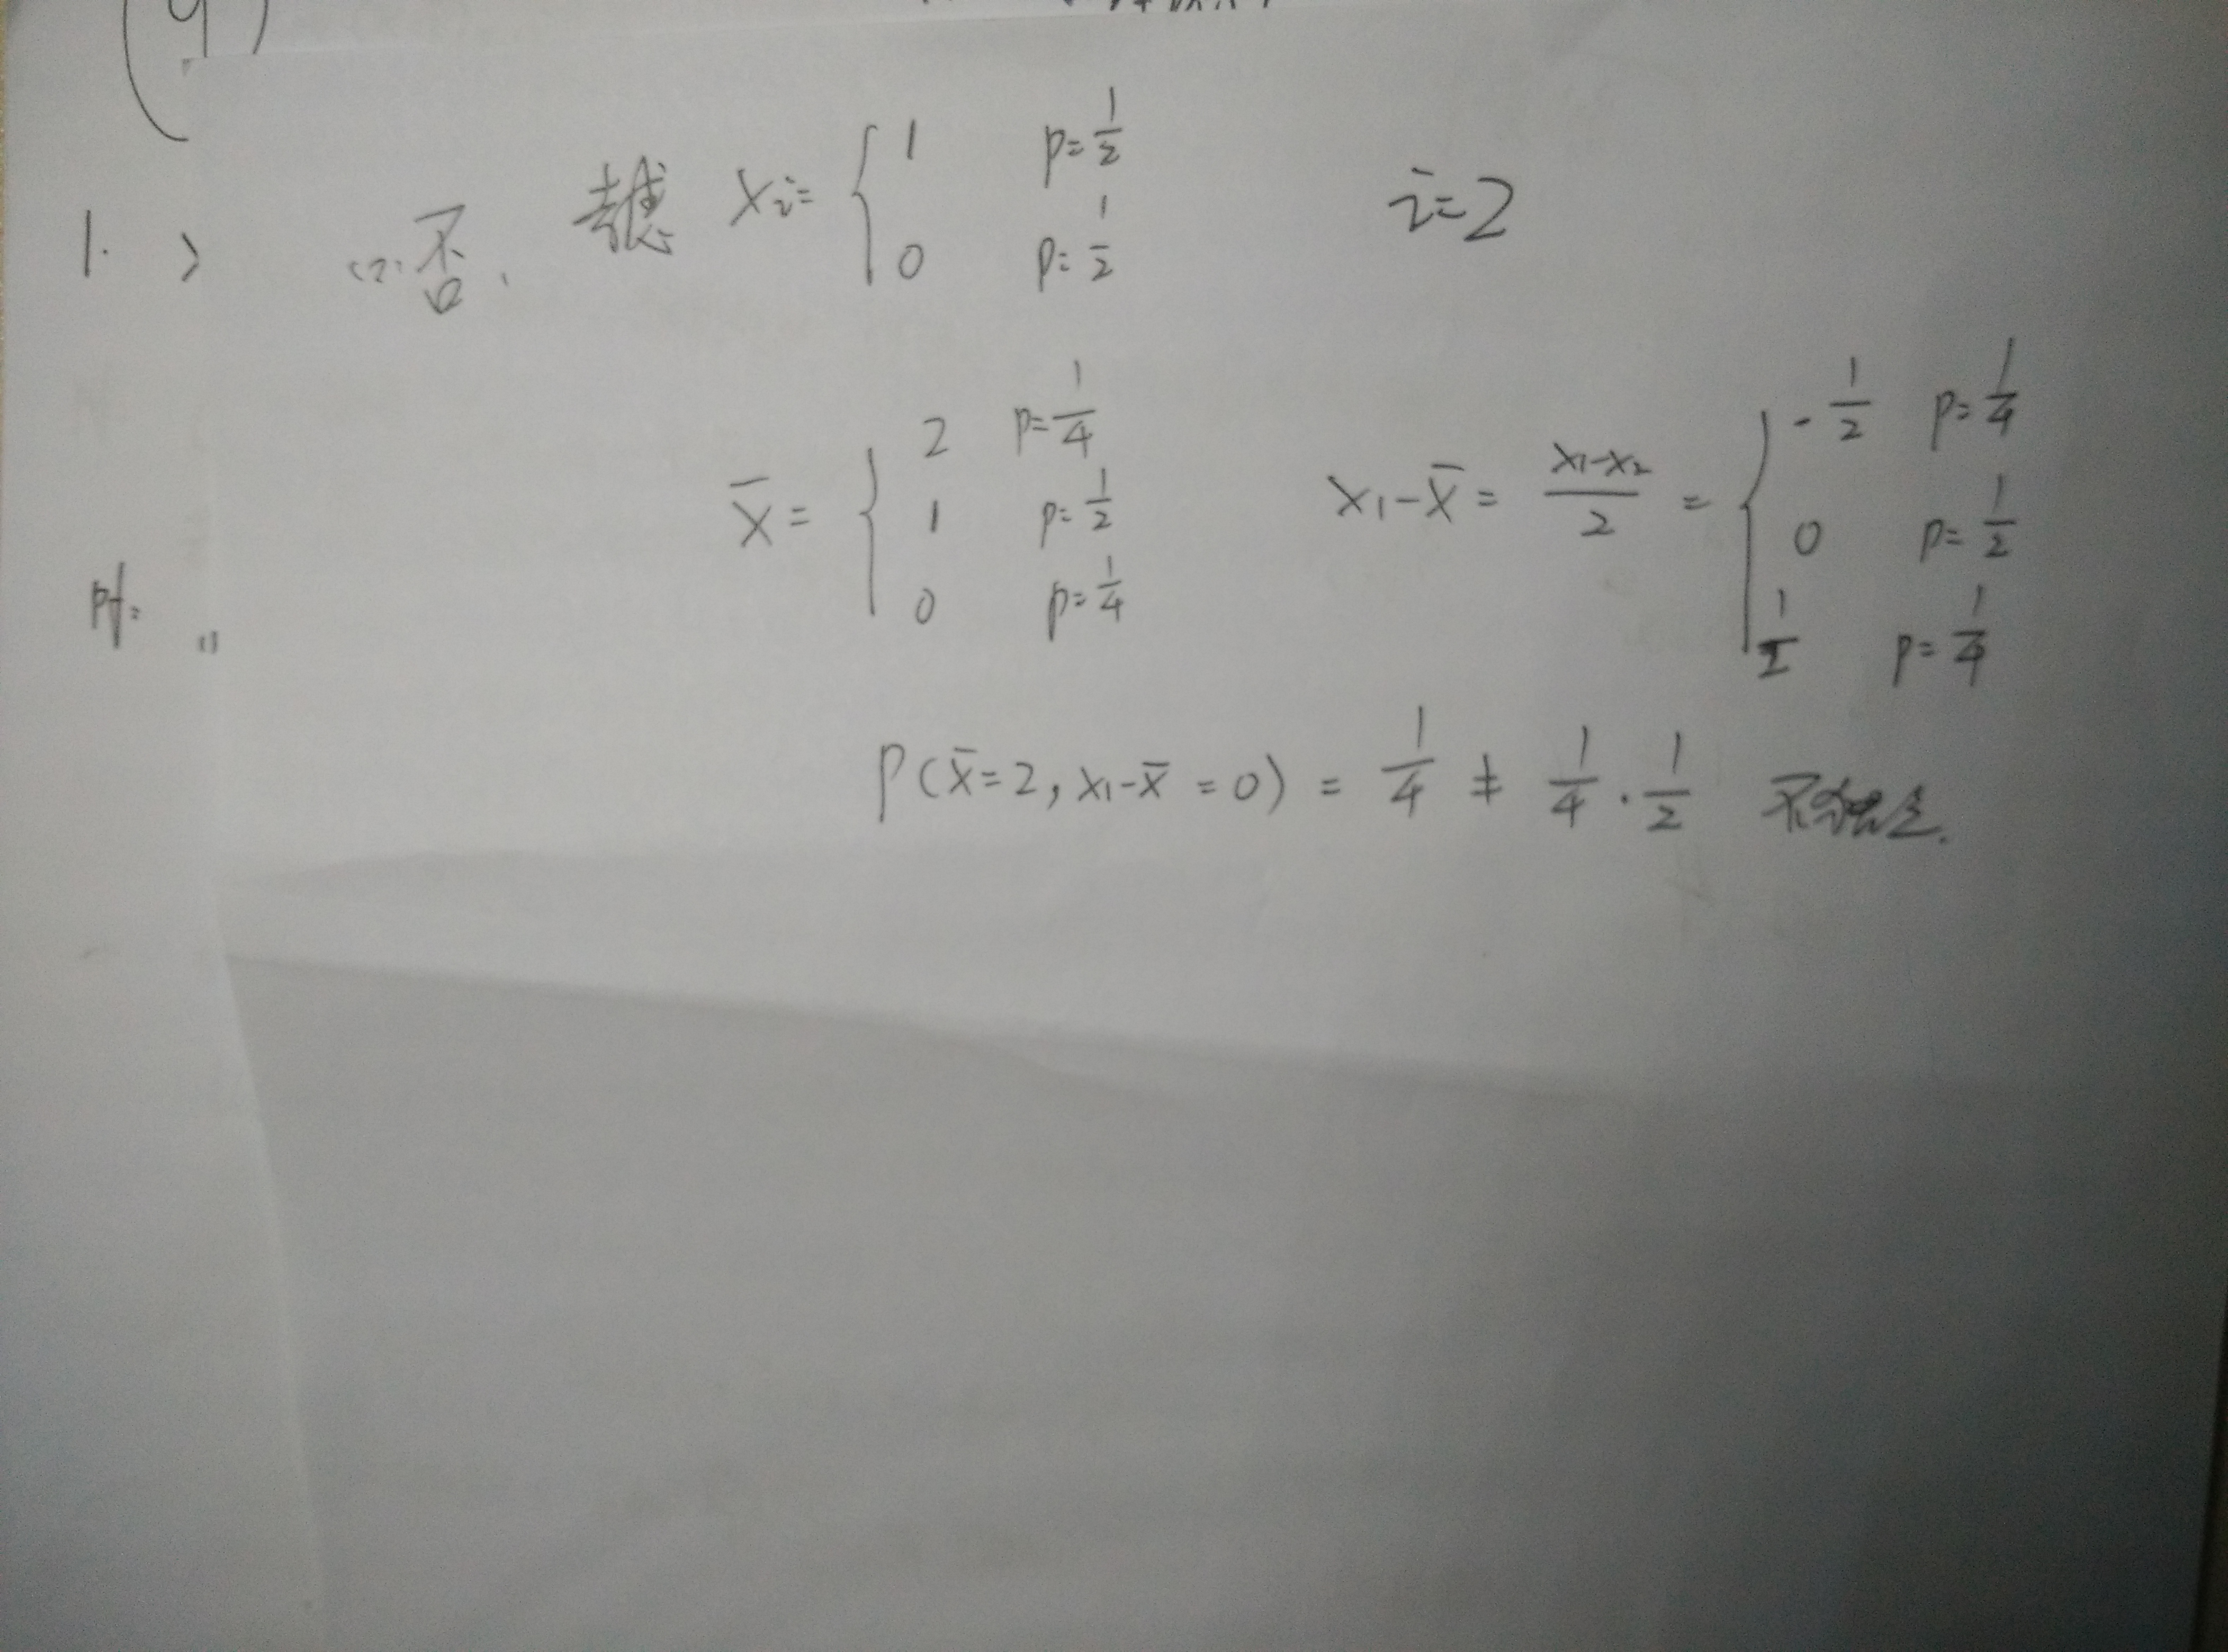 (9)
1. > (2) 否. 考虑 Xi= { 1 p=1/2
0 p=1/2
i=2
X̄= { 2 p=1/4
1 p=1/2
0 p=1/4
X1-X̄ = (X1-X2)/2 = { -1/2 p=1/4
0 p=1/2
1/2 p=1/4
P(X̄=2, X1-X̄=0) = 1/4 ≠ 1/4 · 1/2 不独立.